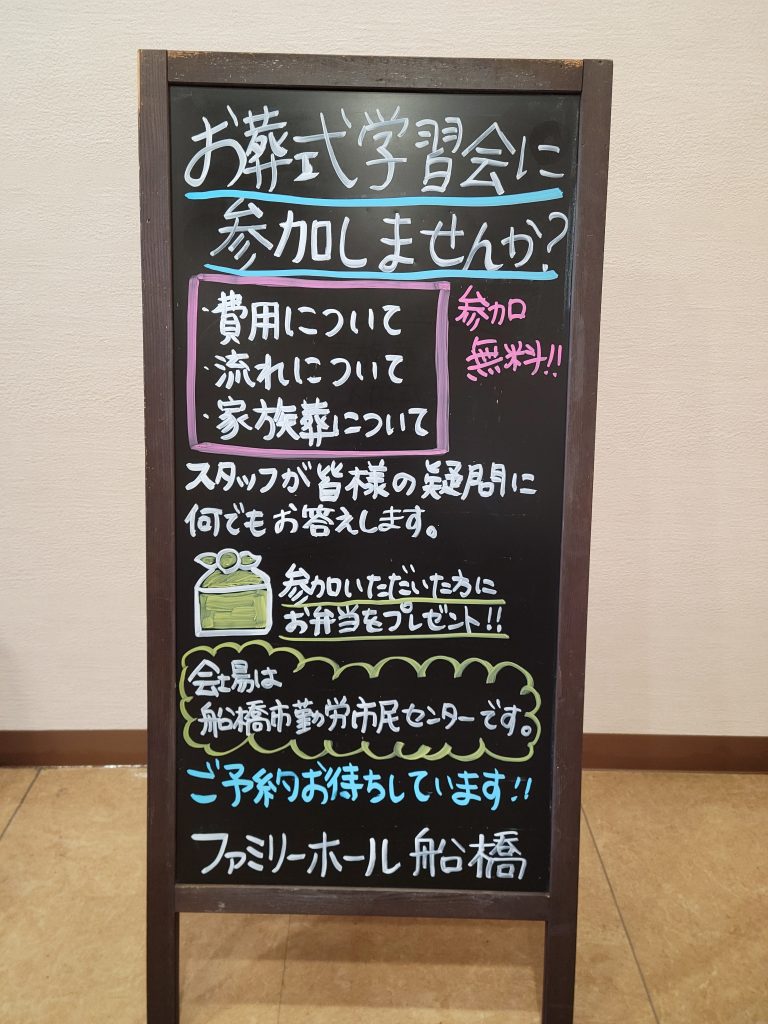 お葬式学習会に
参加しませんか?
・費用について
・流れについて
・家族葬について
参加
無料!!
スタッフが皆様の疑問に
何でもお答えします。
参加いただいた方に
お弁当をプレゼント!!
会場は
船橋市勤労市民センターです。
ご予約お待ちしています!!
ファミリーホール船橋